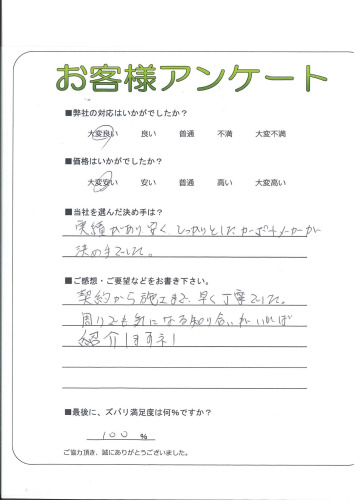 お客様アンケート
■弊社の対応はいかがでしたか？
大変良い 良い 普通 不満 大変不満
■価格はいかがでしたか？
大変安い 安い 普通 高い 大変高い
■当社を選んだ決め手は？
実績があり安く しっかりとしたカーポートメーカーが
決め手でした。
■ご感想・ご要望などをお書き下さい。
契約から施工まで、早く丁寧でした。
周りでも気になる知り合いがいれば
紹介しますネ！
■最後に、ズバリ満足度は何%ですか？
100 %
ご協力頂き、誠にありがとうございました。